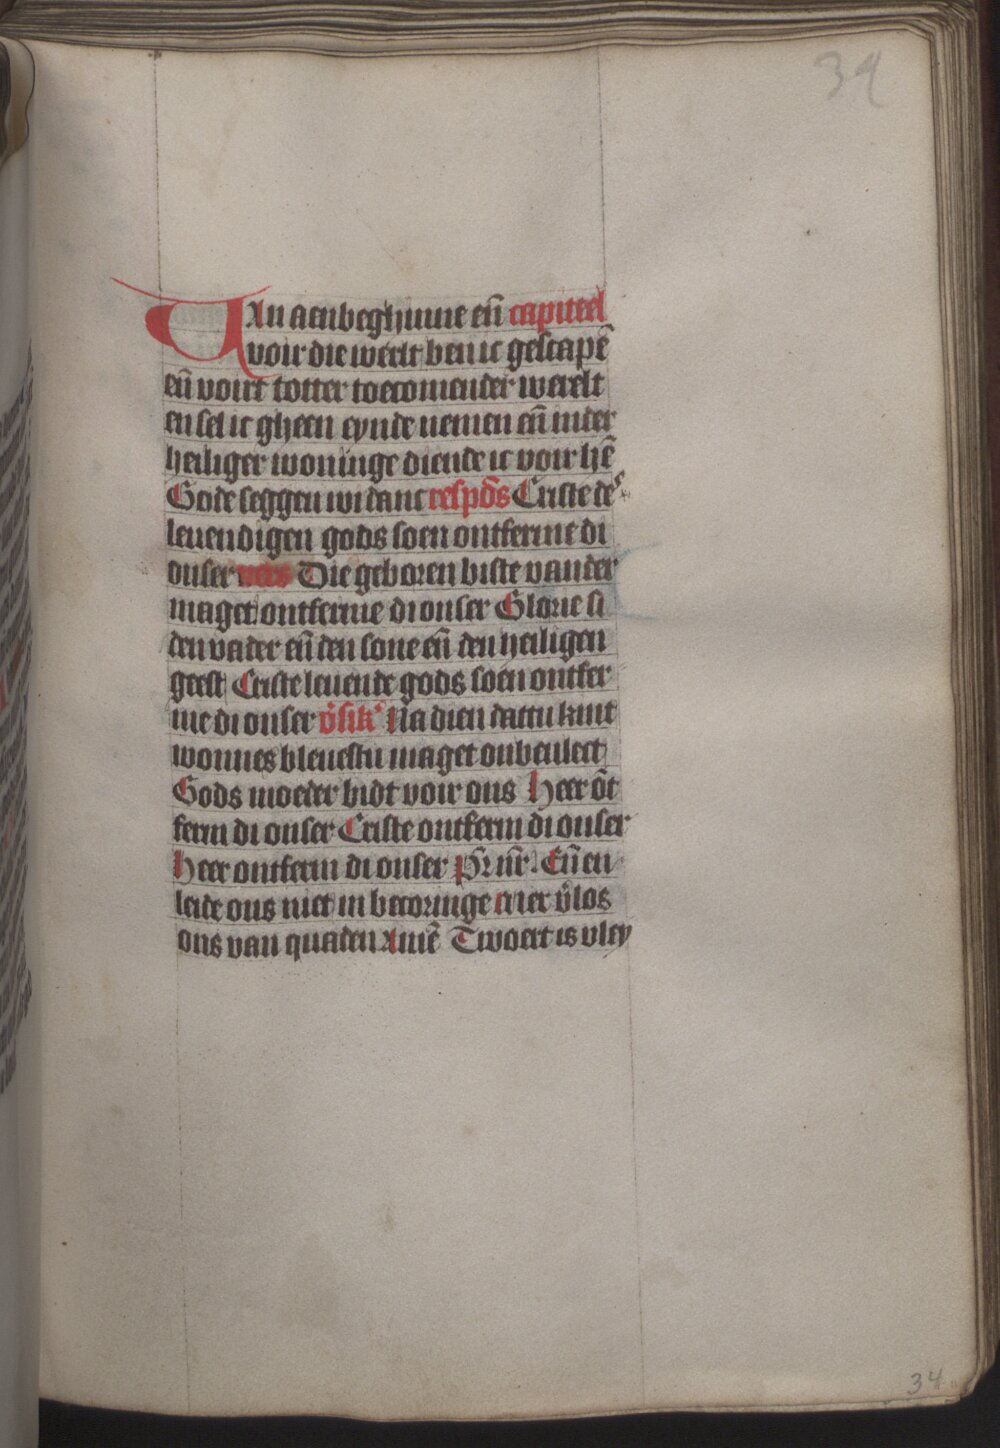 34
Van aenbeghinne en̄ capiteel
voir die werlt ben ic gescapē
en̄ voirt totter toecomender werelt
en sel ic gheen eynde nemen en̄ in der
heiliger woninge diende ic voir hē
Gode seggen wi danc respōs Criste des
leuendigen gods soen ontferme di
onser vers Die geboren biste van der
maget ontferme di onser Glorie si
den vader en̄ den sone en̄ den heiligen
geest Criste leuende gods soen ontfer
me di onser v̄sik' Na dien dattu kint
wonnes bleuestu maget onbeulect
Gods moeder bidt voir ons Heer ōt
ferm di onser Criste ontferm di onser
Heer ontferm di onser Pr̄ nr̄. En̄ en
leide ons niet in becoringe mer v̄los
ons van quaden Amē Twoert is vley
34